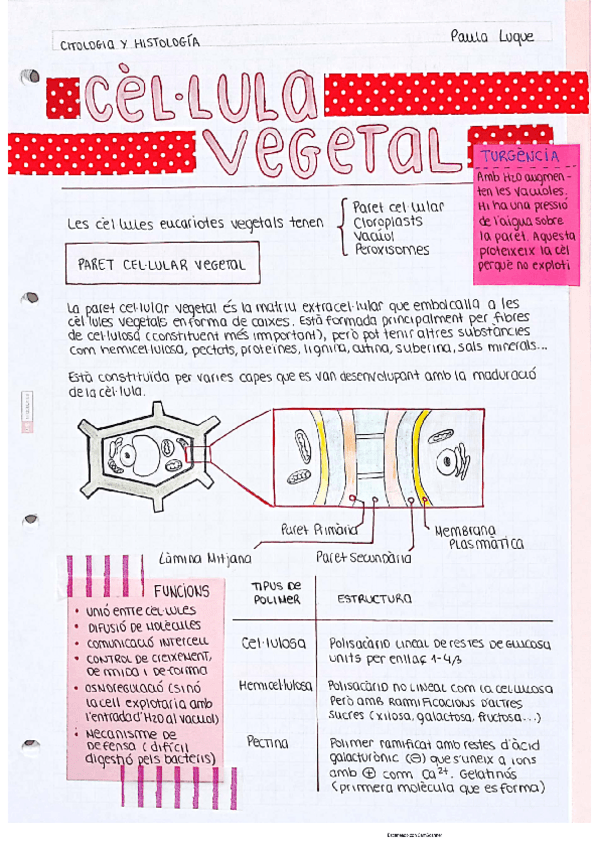 CITOLOGIA Y HISTOLOGÍA
Paula Luque
CÈL·LULA
VEGETAL
TURGÈNCIA
Amb H2O augmen-
ten les vacúoles.
Hi ha una pressió
de l'aigua sobre
la paret. Aquesta
proteixeix la cèl
perquè no exploti
Les cèl·lules eucariotes vegetals tenen
Paret cel·lular
Cloroplasts
Vacúol
Peroxisomes
PARET CEL·LULAR VEGETAL
La paret cel·lular vegetal és la matriu extracel·lular que embolcalla a les
cèl·lules vegetals en forma de caixes. Està formada principalment per fibres
de cel·lulosa (constituent més important), però pot tenir altres substàncies
com hemicel·lulosa, pectats, proteïnes, lignina, cutina, suberina, sals minerals...
Està constituïda per varies capes que es van desenvolupant amb la maduració
de la cèl·lula.
Paret Primària
Membrana
Plasmàtica
Làmina Mitjana
Paret Secundària
FUNCIONS
• UNIÓ ENTRE CÈL·LULES
• DIFUSIÓ DE MOLÈCULES
• COMUNICACIÓ INTERCELL
• CONTROL DE CREIXEMENT,
DE MIDA I DE FORMA
• OSMOREGULACIÓ (SINÓ
la cell explotaria amb
l'entrada d'H2O al vacúol)
• MECANISME DE
DEFENSA (difícil
digestió pels bacteris)
TIPUS DE
POLIMER
ESTRUCTURA
Cel·lulosa
Polisacàrid lineal de restes de glucosa
units per enllaç 1-4/3
Hemicel·lulosa
Polisacàrid no lineal com la cel·lulosa
Però amb ramificacions d'altres
sucres (xilosa, galactosa, fructosa...)
Pectina
Polimer ramificat amb restes d'àcid
galacturònic (⊖) que s'uneix a ions
amb ⊕ com Ca²⁺. Gelatinós
(primera molècula que es forma)
Escaneado con CamScanner